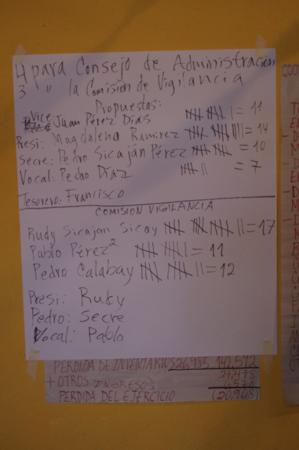 4 para Consejo de Administracion
3 " la Comision de Vigilancia
Propuestas:
Vice Juan Pérez Días = 11
Presi: Magdalena Ramirez = 14
Secre: Pedro Sicaján Pérez = 10
Vocal: Pedro Díaz = 7
Tesorero: Francisco
COMISION VIGILANCIA
Rudy Sicaján Sicay = 17
Pablo Pérez² = 11
Pedro Calabay = 12
Presi: Rudy
Pedro: Secre
Vocal: Pablo
PERDIDA DE INVENTARIOS
+ OTROS INGRESOS
PERDIDA DEL EJERCICIO